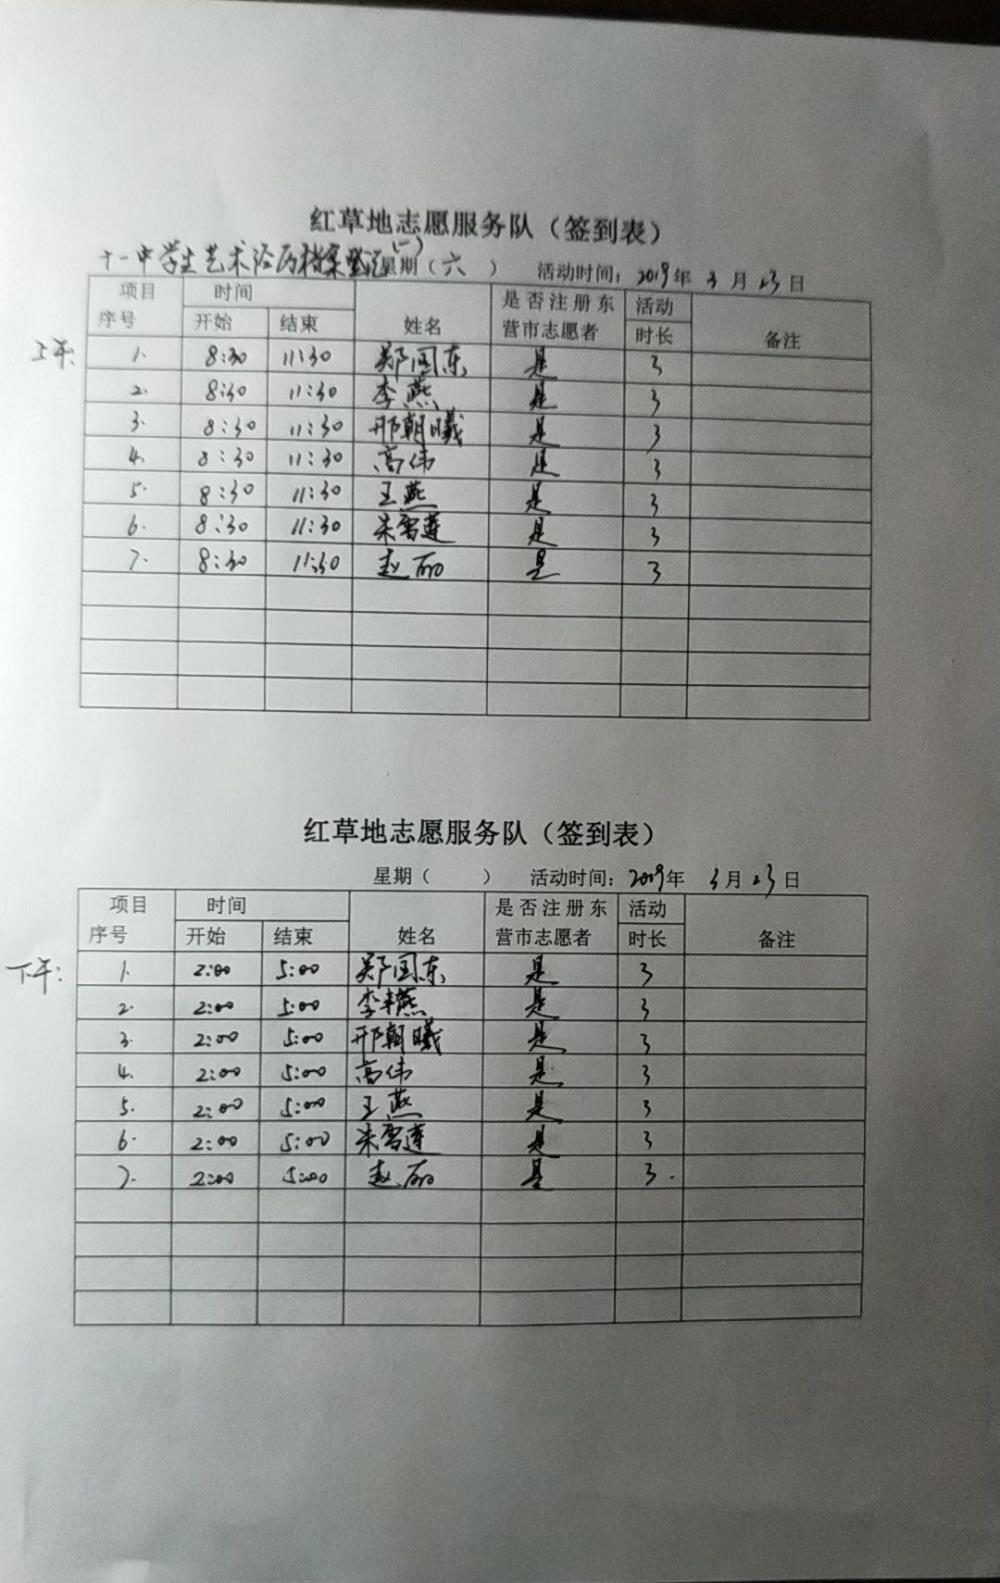 红草地志愿服务队（签到表）
十一中学生艺术经历档案 (一) 星期（六） 活动时间：2019年 3月 23日
项目 时间 是否注册东 活动
序号 开始 结束 姓名 营市志愿者 时长 备注
上午:
1. 8:30 11:30 郑国东 是 3
2. 8:30 11:30 李燕 是 3
3. 8:30 11:30 邢朝曦 是 3
4. 8:30 11:30 高伟 是 3
5. 8:30 11:30 王燕 是 3
6. 8:30 11:30 朱雪莲 是 3
7. 8:30 11:30 赵丽 是 3
红草地志愿服务队（签到表）
星期（ ） 活动时间：2019年 3月 23日
项目 时间 是否注册东 活动
序号 开始 结束 姓名 营市志愿者 时长 备注
下午:
1. 2:00 5:00 郑国东 是 3
2. 2:00 5:00 李燕 是 3
3. 2:00 5:00 邢朝曦 是 3
4. 2:00 5:00 高伟 是 3
5. 2:00 5:00 王燕 是 3
6. 2:00 5:00 朱雪莲 是 3
7. 2:00 5:00 赵丽 是 3.